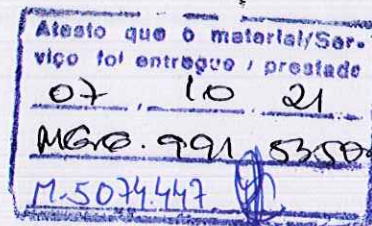 Atesto que o material/Ser-
viço foi entregue / prestado
07 10 21
991 5350
M-5074.447